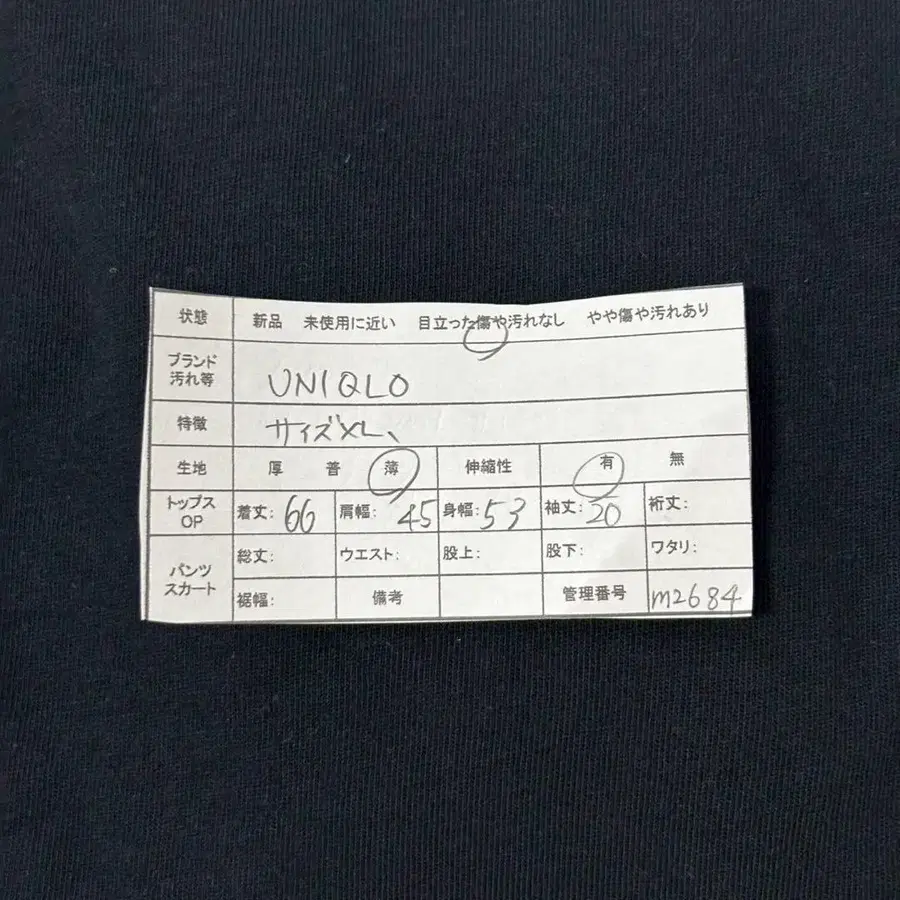 状態 新品 未使用に近い 目立った傷や汚れなし やや傷や汚れあり
ブランド
汚れ等 UNIQLO
特徴 サイズXL、
生地 厚 普 薄 伸縮性 有 無
トップス
OP 着丈: 66 肩幅: 45 身幅: 53 袖丈: 20 裄丈:
パンツ
スカート 総丈: ウエスト: 股上: 股下: ワタリ:
裾幅: 備考 管理番号 m2684